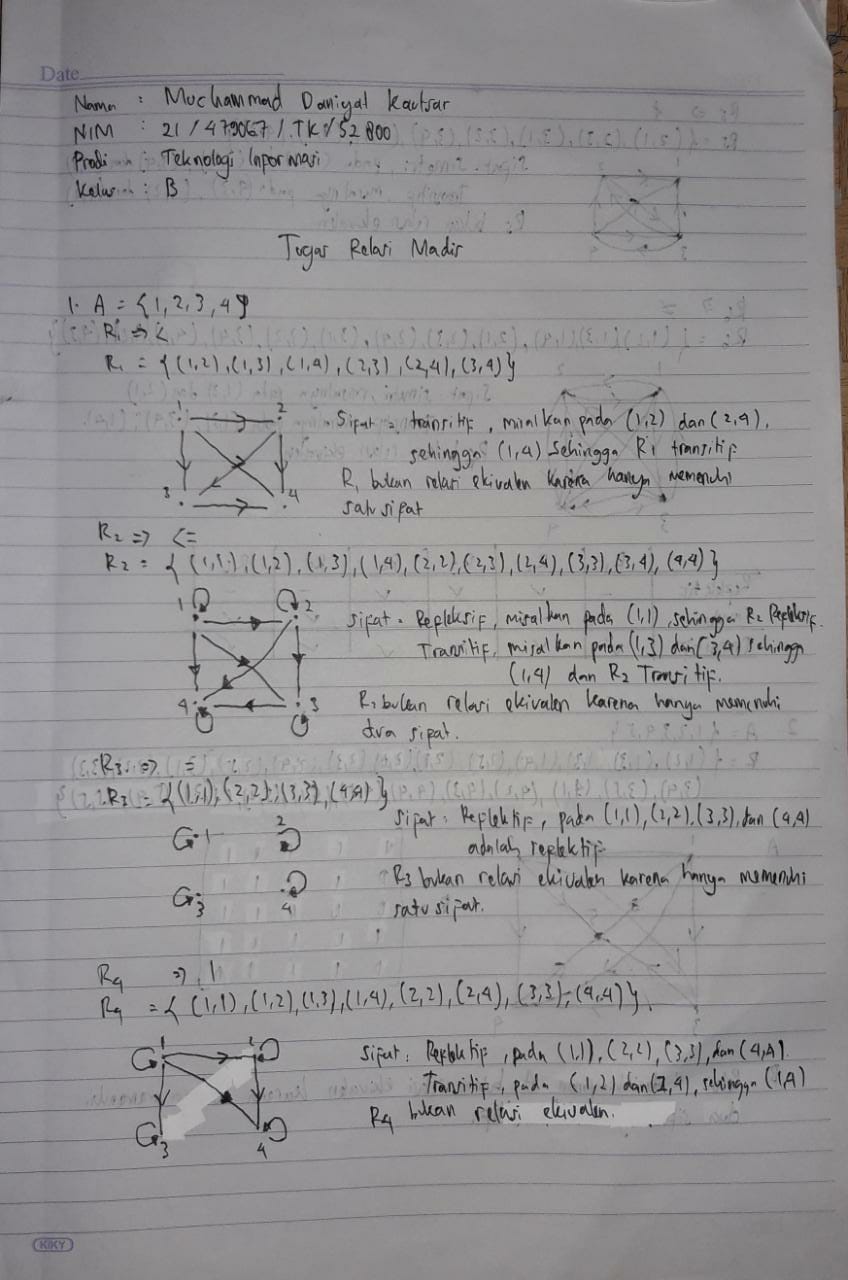 Date
Nama : Muchammad Daniyal Kautsar
NIM : 21/479067/TK/52800
Prodi : Teknologi Informasi
Kelas : B
Tugas Relasi Madis
1. A = {1, 2, 3, 4}
R1 => <
R1 = {(1,2), (1,3), (1,4), (2,3), (2,4), (3,4)}
1 2
3 4
Sifat = transitif, misalkan pada (1,2) dan (2,4),
sehingga (1,4) sehingga R1 transitif
R1 bukan relasi ekivalen karena hanya memenuhi
satu sifat
R2 => <=
R2 = {(1,1), (1,2), (1,3), (1,4), (2,2), (2,3), (2,4), (3,3), (3,4), (4,4)}
1 2
4 3
Sifat = Refleksif, misalkan pada (1,1), sehingga R2 Refleksif.
Transitif, misalkan pada (1,3) dan (3,4) sehingga
(1,4) dan R2 Transitif.
R2 bukan relasi ekivalen karena hanya memenuhi
dua sifat.
R3 => =
R3 = {(1,1), (2,2), (3,3), (4,4)}
1 2
3 4
Sifat : Reflektif, pada (1,1), (2,2), (3,3), dan (4,4)
adalah reflektif
R3 bukan relasi ekivalen karena hanya memenuhi
satu sifat.
R4 => |
R4 = {(1,1), (1,2), (1,3), (1,4), (2,2), (2,4), (3,3), (4,4)}.
1 2
3 4
Sifat : Reflektif, pada (1,1), (2,2), (3,3), dan (4,4).
Transitif, pada (1,2) dan (2,4), sehingga (1,4)
R4 bukan relasi ekivalen.
KIKY